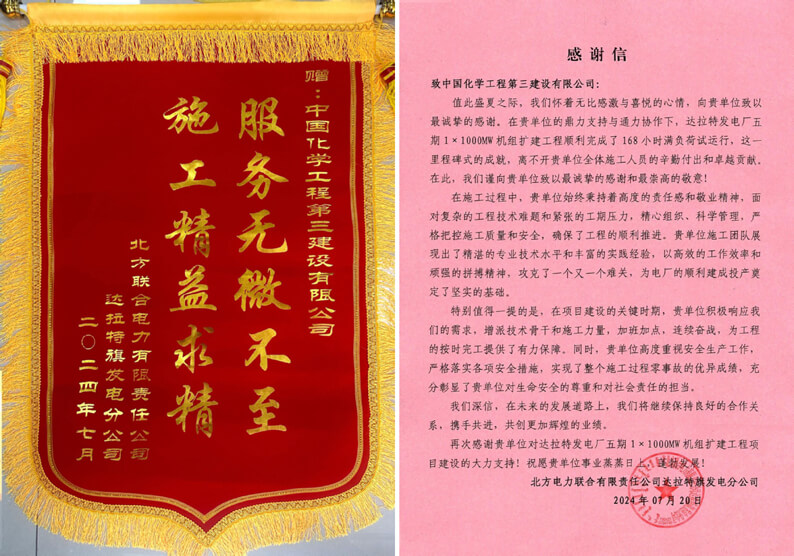 赠：中国化学工程第三建设有限公司
服务无微不至
施工精益求精
北方联合电力有限责任公司
达拉特旗发电分公司
二〇二四年七月
感谢信
致中国化学工程第三建设有限公司：
值此盛夏之际，我们怀着无比感激与喜悦的心情，向贵单位致以
最诚挚的感谢。在贵单位的鼎力支持与通力协作下，达拉特发电厂五
期1×1000MW机组扩建工程顺利完成了168小时满负荷试运行，这一
里程碑式的成就，离不开贵单位全体施工人员的辛勤付出和卓越贡献。
在此，我们谨向贵单位致以最诚挚的感谢和最崇高的敬意！
在施工过程中，贵单位始终秉持着高度的责任感和敬业精神，面
对复杂的工程技术难题和紧张的工期压力，精心组织、科学管理，严
格把控施工质量和安全，确保了工程的顺利推进。贵单位施工团队展
现出了精湛的专业技术水平和丰富的实践经验，以高效的工作效率和
顽强的拼搏精神，攻克了一个又一个难关，为电厂的顺利建成投产奠
定了坚实的基础。
特别值得一提的是，在项目建设的关键时期，贵单位积极响应我
们的需求，增派技术骨干和施工力量，加班加点，连续奋战，为工程
的按时完工提供了有力保障。同时，贵单位高度重视安全生产工作，
严格落实各项安全措施，实现了整个施工过程零事故的优异成绩，充
分彰显了贵单位对生命安全的尊重和对社会责任的担当。
我们深信，在未来的发展道路上，我们将继续保持良好的合作关
系，携手共进，共创更加辉煌的业绩。
再次感谢贵单位对达拉特发电厂五期1×1000MW机组扩建工程项
目建设的大力支持！祝愿贵单位事业蒸蒸日上，蓬勃发展！
北方电力联合有限责任公司达拉特旗发电分公司
2024年07月20日